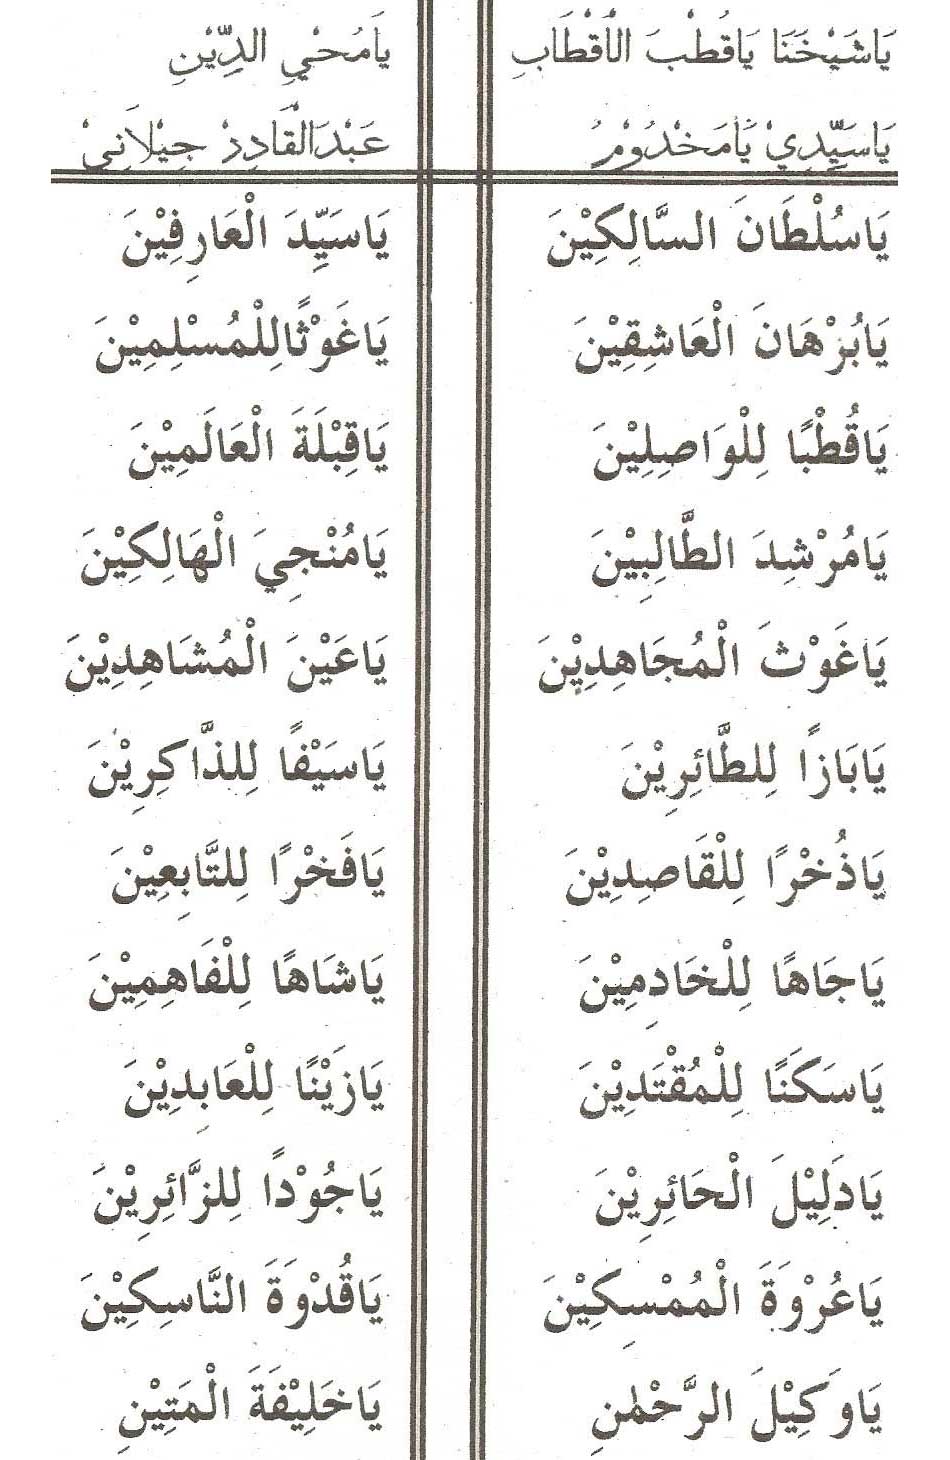 يَاشَيْخَنَا يَاقُطْبَ الْاَقْطَابِ يَامُحْيِ الدِّيْنِ
يَاسَيِّدِيْ يَامَخْدُوْمُ عَبْدَالْقَادِرْ جِيْلَانِيْ
يَاسُلْطَانَ السَّالِكِيْنَ يَاسَيِّدَ الْعَارِفِيْنَ
يَابُرْهَانَ الْعَاشِقِيْنَ يَاغَوْثًالِلْمُسْلِمِيْنَ
يَاقُطْبًا لِلْوَاصِلِيْنَ يَاقِبْلَةَ الْعَالَمِيْنَ
يَامُرْشِدَ الطَّالِبِيْنَ يَامُنْجِيَ الْهَالِكِيْنَ
يَاغَوْثَ الْمُجَاهِدِيْنَ يَاعَيْنَ الْمُشَاهِدِيْنَ
يَابَازًا لِلطَّائِرِيْنَ يَاسَيْفًا لِلذَّاكِرِيْنَ
يَاذُخْرًا لِلْقَاصِدِيْنَ يَافَخْرًا لِلتَّابِعِيْنَ
يَاجَاهًا لِلْخَادِمِيْنَ يَاشَاهًا لِلْفَاهِمِيْنَ
يَاسَكَنًا لِلْمُقْتَدِيْنَ يَازَيْنًا لِلْعَابِدِيْنَ
يَادَلِيْلَ الْحَائِرِيْنَ يَاجُوْدًا لِلزَّائِرِيْنَ
يَاعُرْوَةَ الْمُمْسِكِيْنَ يَاقُدْوَةَ النَّاسِكِيْنَ
يَاوَكِيْلَ الرَّحْمٰنِ يَاخَلِيْفَةَ الْمَتِيْنِ